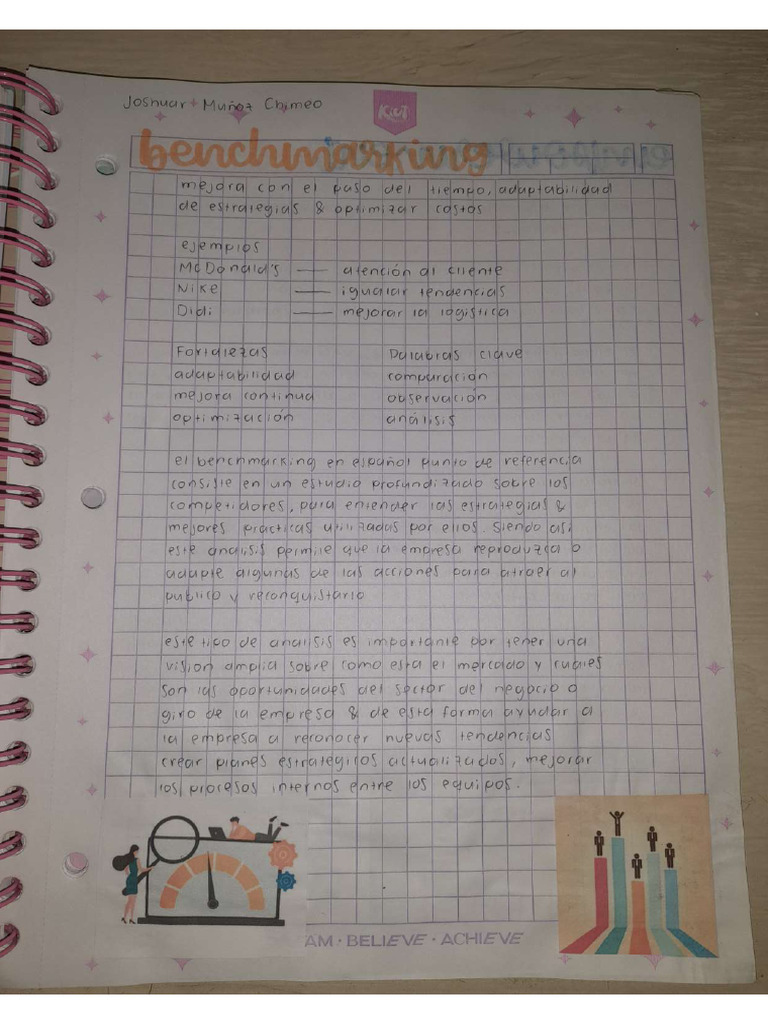 Joshuar Muñoz Chimeo
Kiut
benchmarking
mejora con el paso del tiempo, adaptabilidad
de estrategias & optimizar costos
ejemplos
McDonald's — atención al cliente
Nike — igualar tendencias
Didi — mejorar la logística
Fortalezas Palabras clave
adaptabilidad comparación
mejora continua observación
optimización análisis
el benchmarking en español punto de referencia
consiste en un estudio profundizado sobre los
competidores, para entender las estrategias &
mejores practicas utilizadas por ellos. Siendo asi
este analisis permite que la empresa reproduzca o
adapte algunas de las acciones para atraer al
publico y reconquistarlo
este tipo de analisis es importante por tener una
vision amplia sobre como esta el mercado y cuales
son las oportunidades del sector del negocio o
giro de la empresa & de esta forma ayudar a
la empresa a reconocer nuevas tendencias
crear planes estrategicos actualizados, mejorar
los procesos internos entre los equipos.
AM · BELIEVE · ACHIEVE